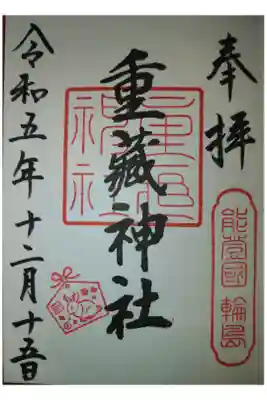 奉拝
能登國 輪島
重蔵神社
令和五年十二月十五日